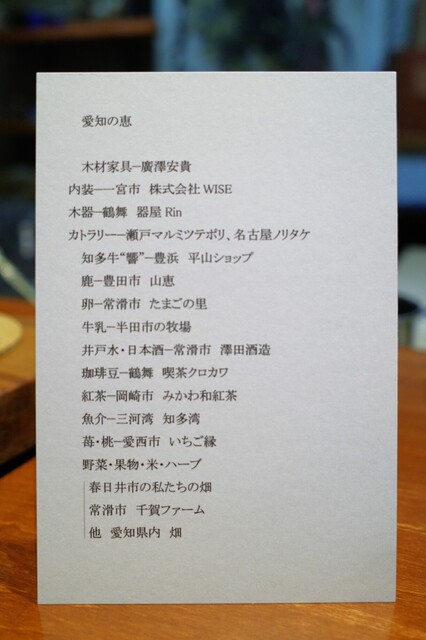 愛知の恵
木材家具―廣澤安貴
内装―一宮市 株式会社 WISE
木器―鶴舞 器屋 Rin
カトラリー―瀬戸マルミツテポリ、名古屋ノリタケ
知多牛“響”―豊浜 平山ショップ
鹿―豊田市 山恵
卵―常滑市 たまごの里
牛乳―半田市の牧場
井戸水・日本酒―常滑市 澤田酒造
珈琲豆―鶴舞 喫茶クロカワ
紅茶―岡崎市 みかわ和紅茶
魚介―三河湾 知多湾
苺・桃―愛西市 いちご縁
野菜・果物・米・ハーブ
春日井市の私たちの畑
常滑市 千賀ファーム
他 愛知県内 畑